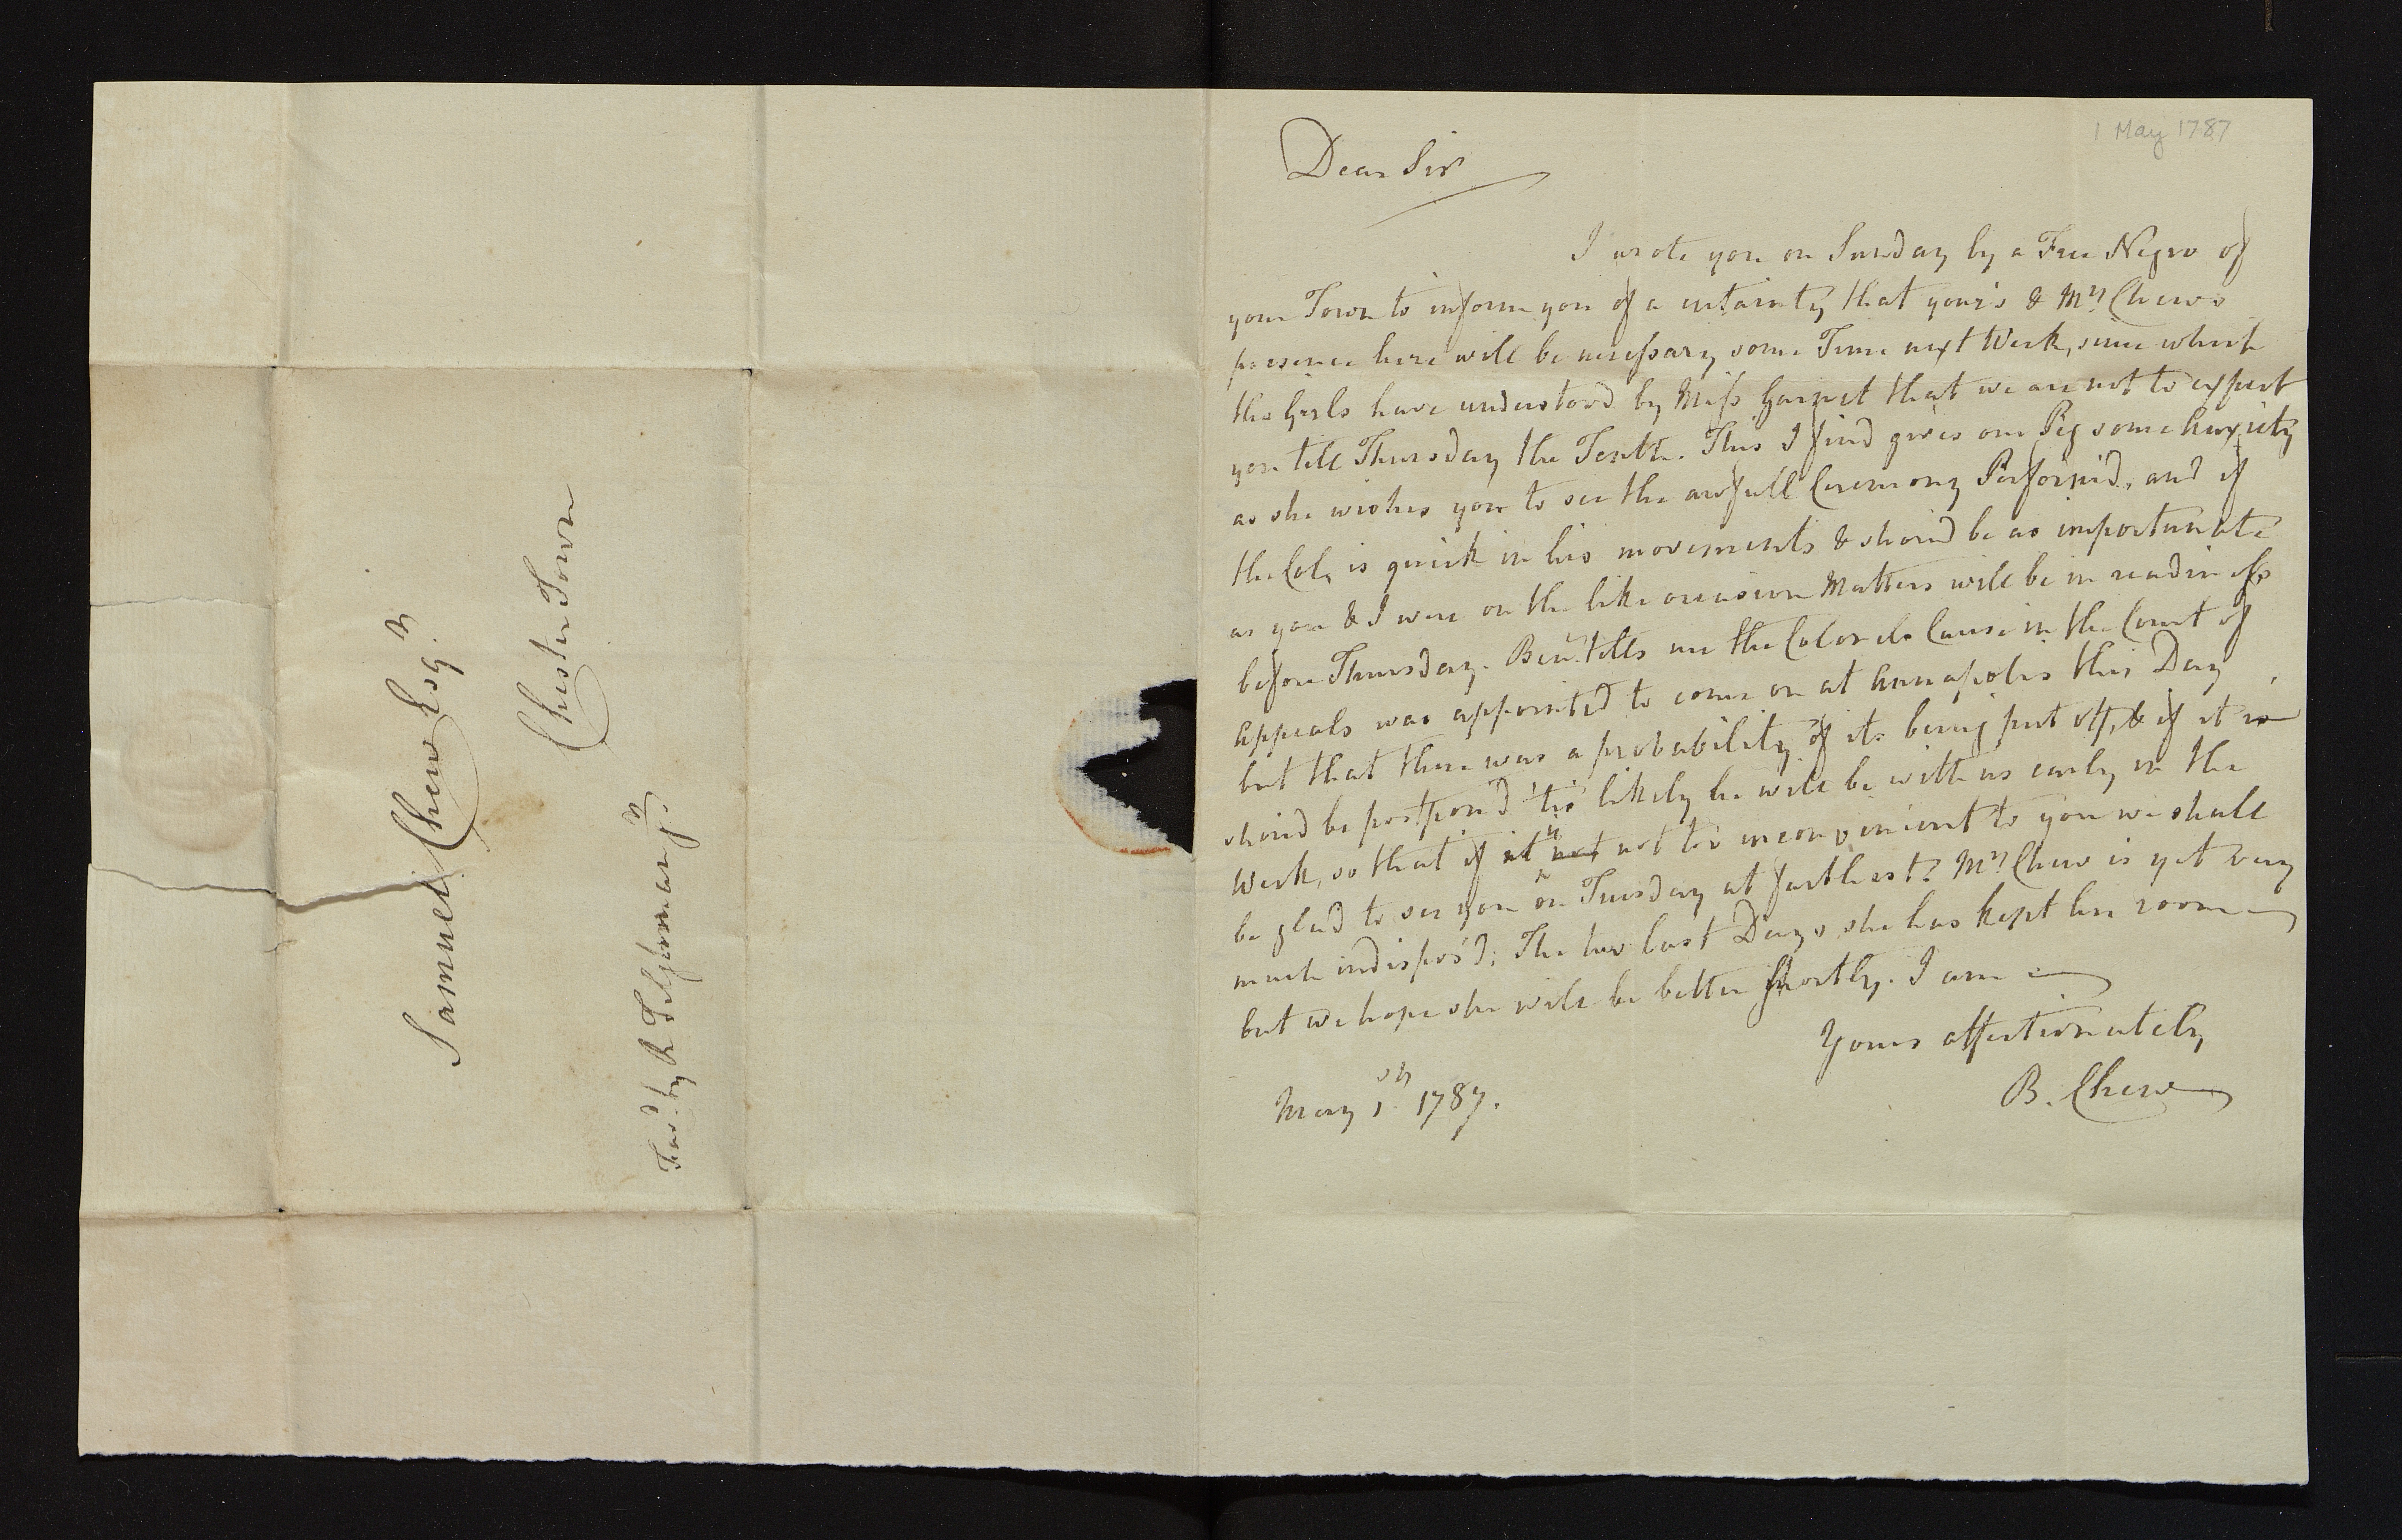 Samuel Chew Esqr.
Chester Town
Favd. by R Tilghman jr.
1 May 1787
Dear Sir
I wrote you on Sunday by a Free Negro of
your Town to inform you of a certainty that your's & Mrs. Chews
presence here will be necessary some Time next Week, since which
the Girls have understood by Miss Garnet that we are not to expect
you till Thursday the Tenth. This I find gives our Peg some Anxiety
as she wishes you to see the awfull Ceremony Perform'd, and if
the Col. is quick in his movements & shoud be as importunate
as you & I were on the like occasion Matters will be in readiness
before Thursday. Benn. tells me the Colonels Cause in the Court of
Appeals was appointed to come on at Annapolis this Day
but that there was a probability of its being put off, & if it
shoud be postpon'd 'tis likely he will be with us early in the
Week, so that if it is not too inconvenient to you we shall
be glad to see you on Tuesday at farthest. Mrs. Chew is yet very
much indispos'd; The two last Days she has kept her room
but we hope she will be better shortly. I am
Yours affectionately
B. Chew
May 1st. 1787.